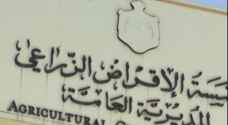 الإقراض الزراعي
المديرية العامة
AGRICULTURAL